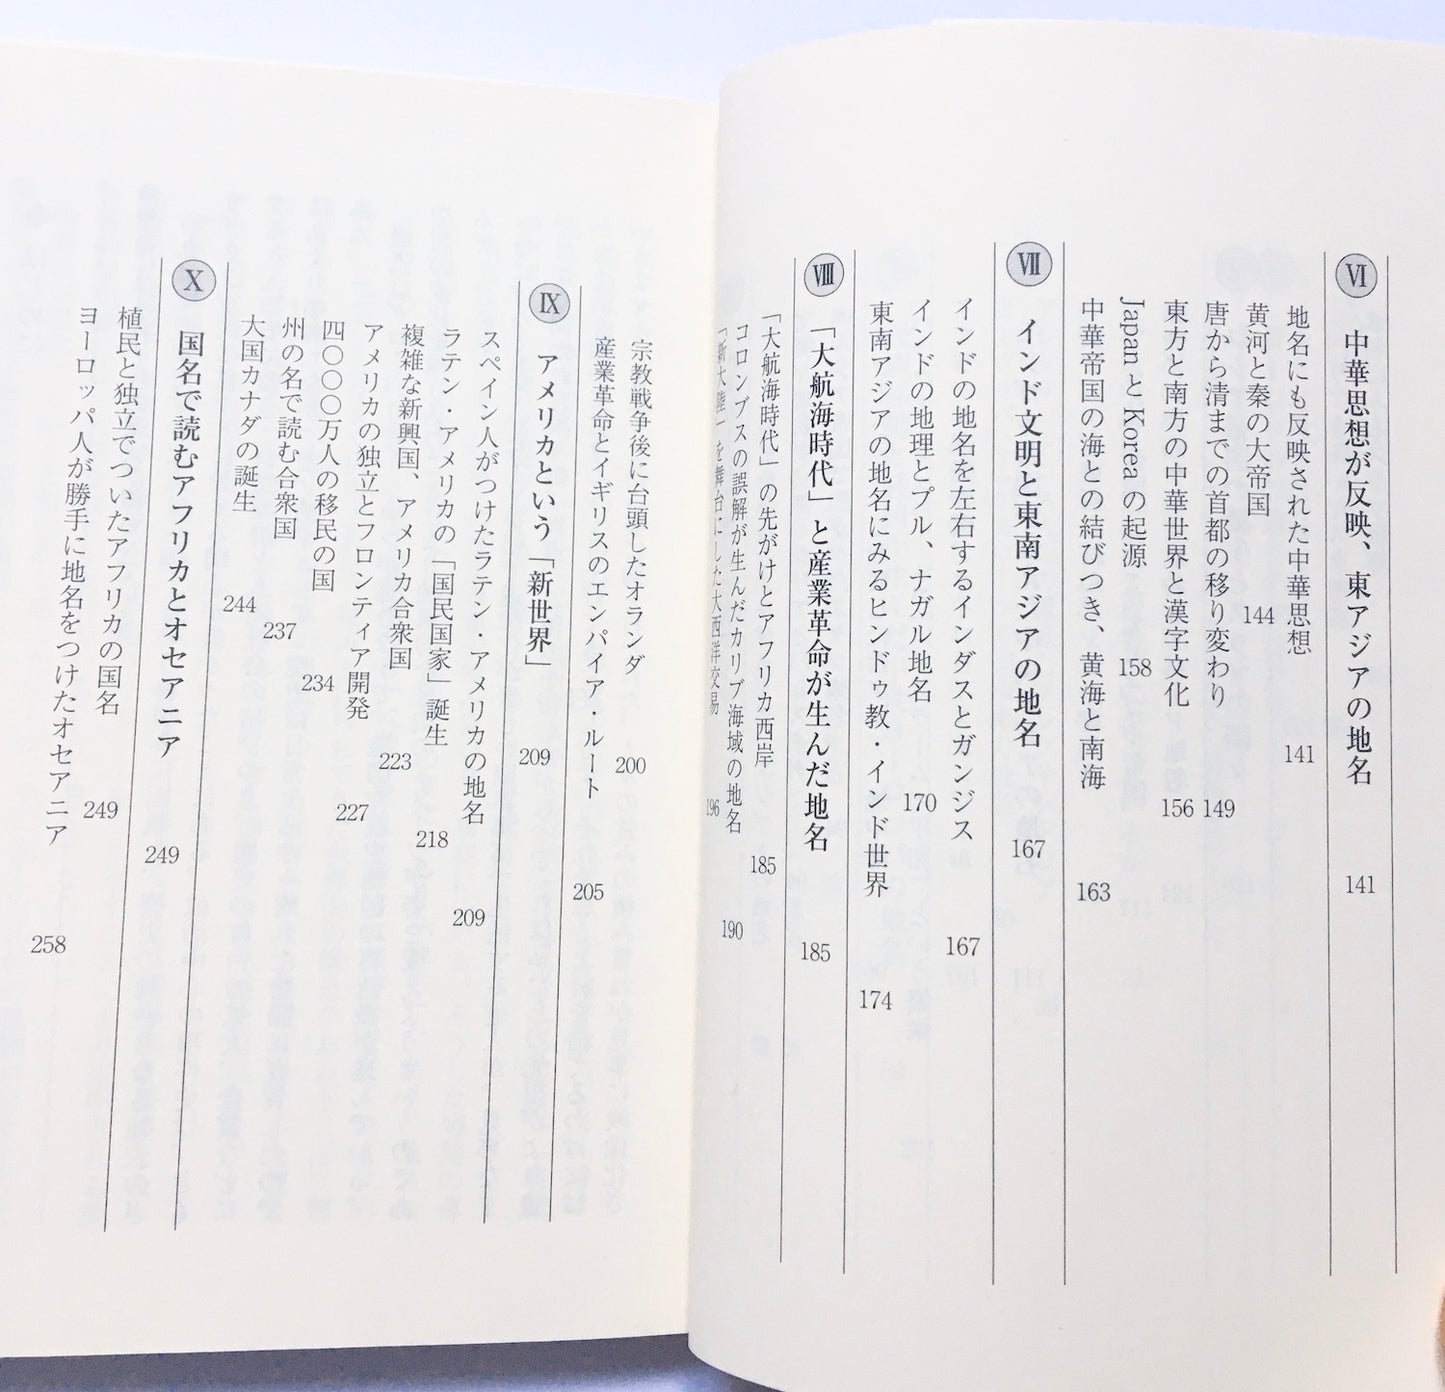 Ⅵ 中華思想が反映、東アジアの地名 141
地名にも反映された中華思想 141
黄河と秦の大帝国 144
唐から清までの首都の移り変わり 149
東方と南方の中華世界と漢字文化 156
Japan と Korea の起源 158
中華帝国の海との結びつき、黄海と南海 163
Ⅶ インド文明と東南アジアの地名 167
インドの地名を左右するインダスとガンジス 167
インドの地理とプル、ナガル地名 170
東南アジアの地名にみるヒンドゥ教・インド世界 174
Ⅷ 「大航海時代」と産業革命が生んだ地名 185
「大航海時代」の先がけとアフリカ西岸 185
コロンブスの誤解が生んだカリブ海域の地名 190
「新大陸」を舞台にした大西洋交易 196
宗教戦争後に台頭したオランダ 200
産業革命とイギリスのエンパイア・ルート 205
Ⅸ アメリカという「新世界」 209
スペイン人がつけたラテン・アメリカの地名 209
ラテン・アメリカの「国民国家」誕生 218
複雑な新興国、アメリカ合衆国 223
アメリカの独立とフロンティア開発 227
四〇〇〇万人の移民の国 234
州の名で読む合衆国 237
大国カナダの誕生 244
Ⅹ 国名で読むアフリカとオセアニア 249
植民と独立でついたアフリカの国名 249
ヨーロッパ人が勝手に地名をつけたオセアニア 258